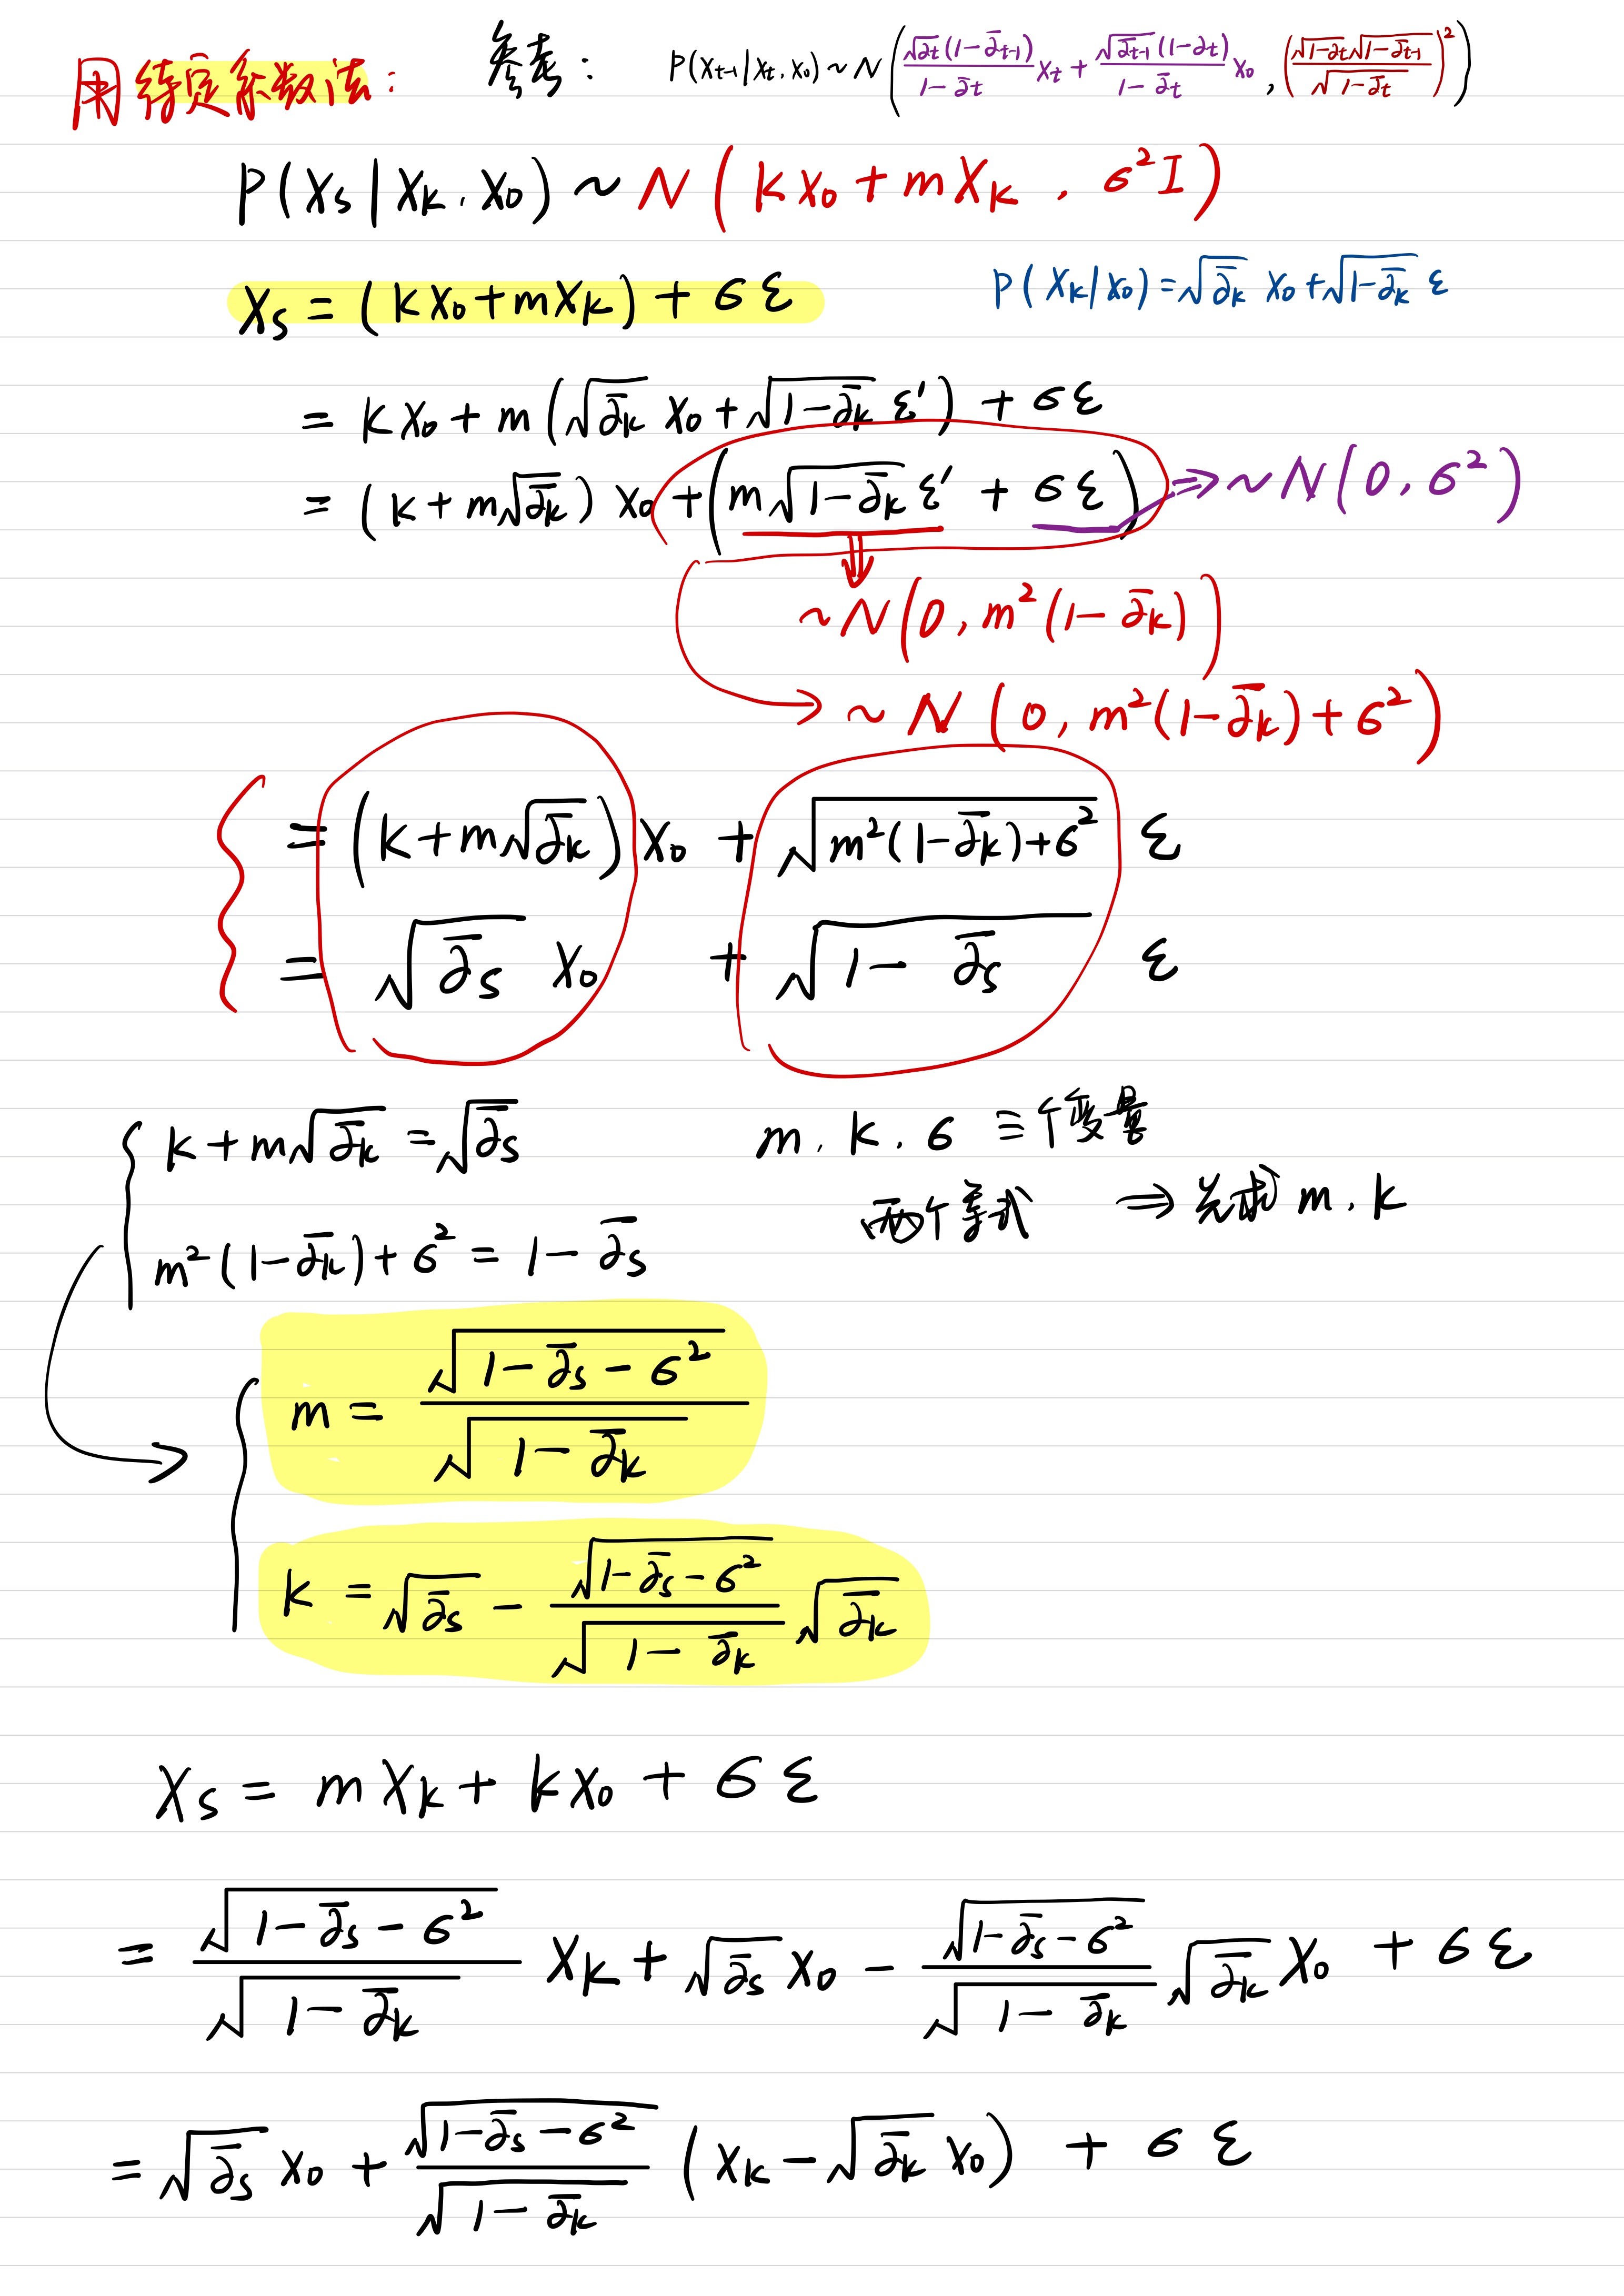 用待定系数法: 参考: P(X_{t-1}|X_t, X_0) ~ N( √α_t(1-ᾱ_{t-1})/(1-ᾱ_t) X_t + √ᾱ_{t-1}(1-α_t)/(1-ᾱ_t) X_0 , (√(1-α_t)√(1-ᾱ_{t-1})/√(1-ᾱ_t))² )
P(X_s|X_k, X_0) ~ N( kX_0 + mX_k , σ²I )
X_s = (kX_0 + mX_k) + σε P(X_k|X_0) = √ᾱ_k X_0 + √(1-ᾱ_k) ε
= kX_0 + m(√ᾱ_k X_0 + √(1-ᾱ_k) ε') + σε
= (k + m√ᾱ_k) X_0 + (m√(1-ᾱ_k) ε' + σε) ⇒ ~ N(0, σ²)
⇓
~ N(0, m²(1-ᾱ_k))
→ ~ N(0, m²(1-ᾱ_k) + σ²)
= (k + m√ᾱ_k) X_0 + √(m²(1-ᾱ_k)+σ²) ε
= √ᾱ_s X_0 + √(1-ᾱ_s) ε
k + m√ᾱ_k = √ᾱ_s m, k, σ 三个变量
两个等式 → 先求 m, k
m²(1-ᾱ_k) + σ² = 1-ᾱ_s
m = √(1-ᾱ_s-σ²) / √(1-ᾱ_k)
k = √ᾱ_s - √(1-ᾱ_s-σ²)/√(1-ᾱ_k) √ᾱ_k
X_s = mX_k + kX_0 + σε
= √(1-ᾱ_s-σ²)/√(1-ᾱ_k) X_k + √ᾱ_s X_0 - √(1-ᾱ_s-σ²)/√(1-ᾱ_k) √ᾱ_k X_0 + σε
= √ᾱ_s X_0 + √(1-ᾱ_s-σ²)/√(1-ᾱ_k) (X_k - √ᾱ_k X_0) + σε